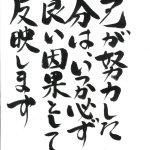 元が努力した
分はいつか必ず
良い因果として
反映します